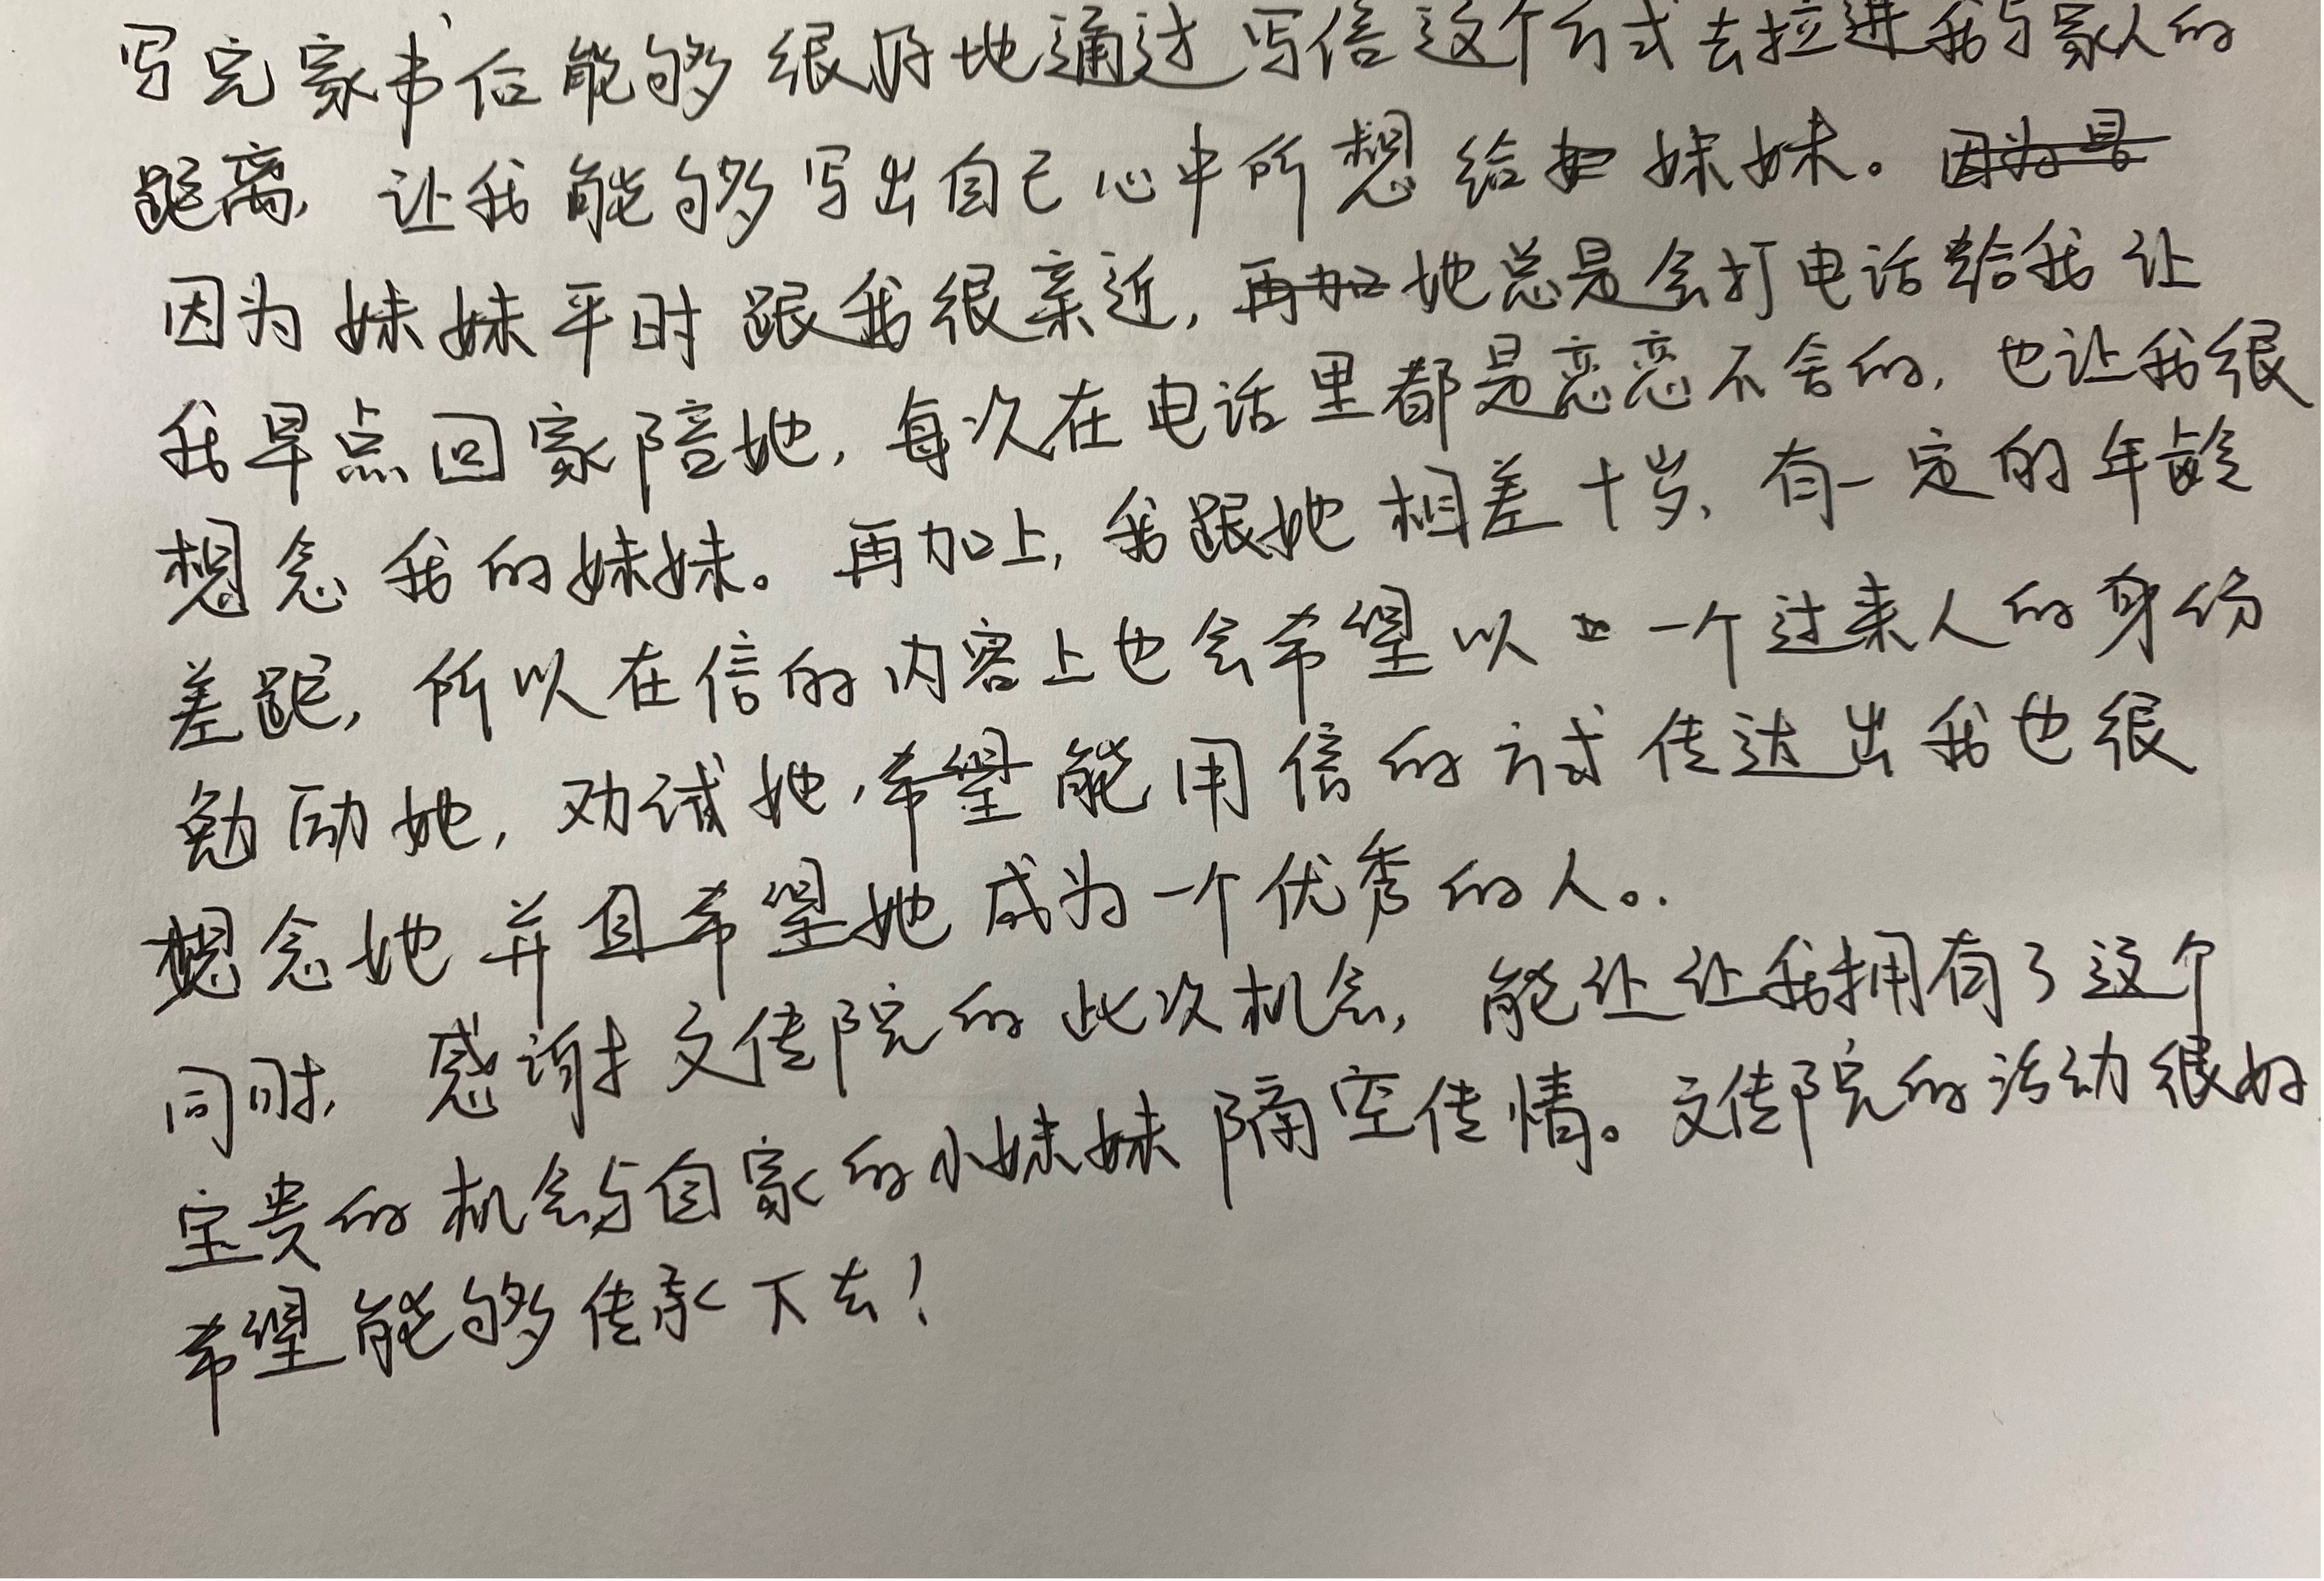 写完家书后能够很好地通过写信这个方式去拉进我与家人的
距离，让我能够写出自己心中所想给妹妹。
因为妹妹平时跟我很亲近，她总是会打电话给我让
我早点回家陪她，每次在电话里都是恋恋不舍的，也让我很
想念我的妹妹。再加上，我跟她相差十岁，有一定的年龄
差距，所以在信的内容上也会希望以一个过来人的身份
勉励她，劝诫她，希望能用信的方式传达出我也很
想念她并且希望她成为一个优秀的人。
同时，感谢文传院的此次机会，能让让我拥有了这个
宝贵的机会与自家的小妹妹隔空传情。文传院的活动很好
希望能够传承下去！